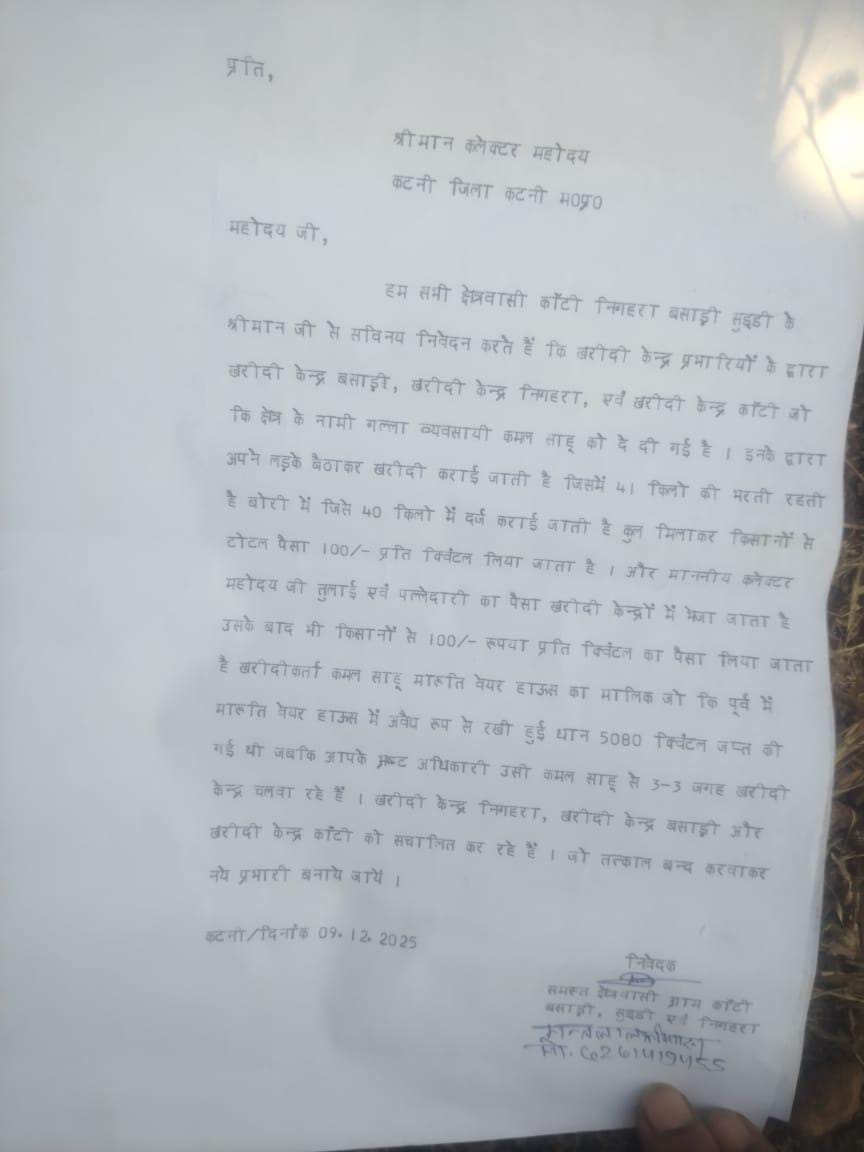 प्रति,
श्रीमान कलेक्टर महोदय
कटनी जिला कटनी म0प्र0
महोदय जी,
हम सभी क्षेत्रवासी काँटी निगहरा बसाड़ी सुड्डी के
श्रीमान जी से सविनय निवेदन करते हैं कि खरीदी केन्द्र प्रभारियों के द्वारा
खरीदी केन्द्र बसाड़ी, खरीदी केन्द्र निगहरा, एवं खरीदी केन्द्र काँटी जो
कि क्षेत्र के नामी गल्ला व्यवसायी कमल साहू को दे दी गई है । इनके द्वारा
अपने लड़के बैठाकर खरीदी कराई जाती है जिसमें 41 किलो की भरती रहती
है बोरी में जिसे 40 किलो में दर्ज कराई जाती है कुल मिलाकर किसानों से
टोटल पैसा 100/- प्रति क्विंटल लिया जाता है । और माननीय कलेक्टर
महोदय जी तुलाई एवं पल्लेदारी का पैसा खरीदी केन्द्रों में भेजा जाता है
उसके बाद भी किसानों से 100/- रूपया प्रति क्विंटल का पैसा लिया जाता
है खरीदीकर्ता कमल साहू मारूति वेयर हाऊस का मालिक जो कि पूर्व में
मारूति वेयर हाऊस में अवैध रूप से रखी हुई धान 5080 क्विंटल जप्त की
गई थी जबकि आपके भ्रष्ट अधिकारी उसी कमल साहू से 3-3 जगह खरीदी
केन्द्र चलवा रहे हैं । खरीदी केन्द्र निगहरा, खरीदी केन्द्र बसाड़ी और
खरीदी केन्द्र काँटी को सचालित कर रहे हैं । जो तत्काल बन्द करवाकर
नये प्रभारी बनाये जायें ।
कटनी/दिनांक 09.12.2025
निवेदक
समस्त क्षेत्रवासी ग्राम काँटी
बसाड़ी, सुड्डी एवं निगहरा
मो. 6261419455